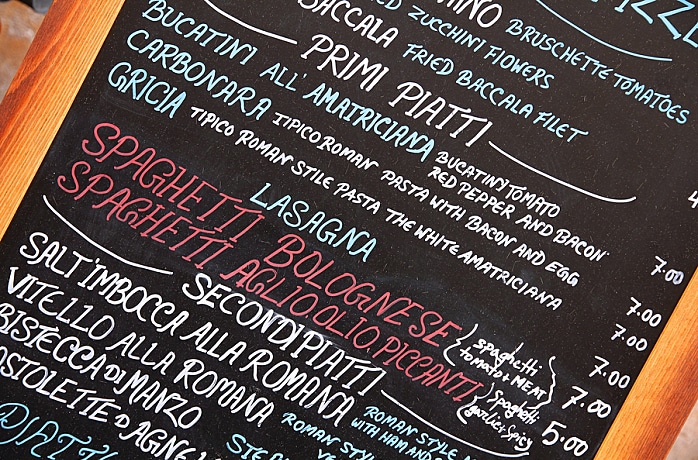 PIZZE
BRUSCHETTE TOMATOES
FRIED ZUCCHINI FLOWERS
BACCALA FRIED BACCALA FILET
PRIMI PIATTI
BUCATINI ALL'AMATRICIANA BUCATINI TOMATO RED PEPPER AND BACON 7.00
CARBONARA TIPICO ROMAN PASTA WITH BACON AND EGG 7.00
GRICIA TIPICO ROMAN STILE PASTA THE WHITE AMATRICIANA 7.00
LASAGNA 7.00
SPAGHETTI BOLOGNESE {spaghetti tomato & MEAT} 7.00
SPAGHETTI AGLIO OLIO, PICCANTI {Spaghetti garlic & Spicy 5.00
SECONDI PIATTI
SALT'IMBOCCA ALLA ROMANA ROMAN STYLE WITH HAM AND
VITELLO ALLA ROMANA ROMAN STYLE
BISTECCA DI MANZO